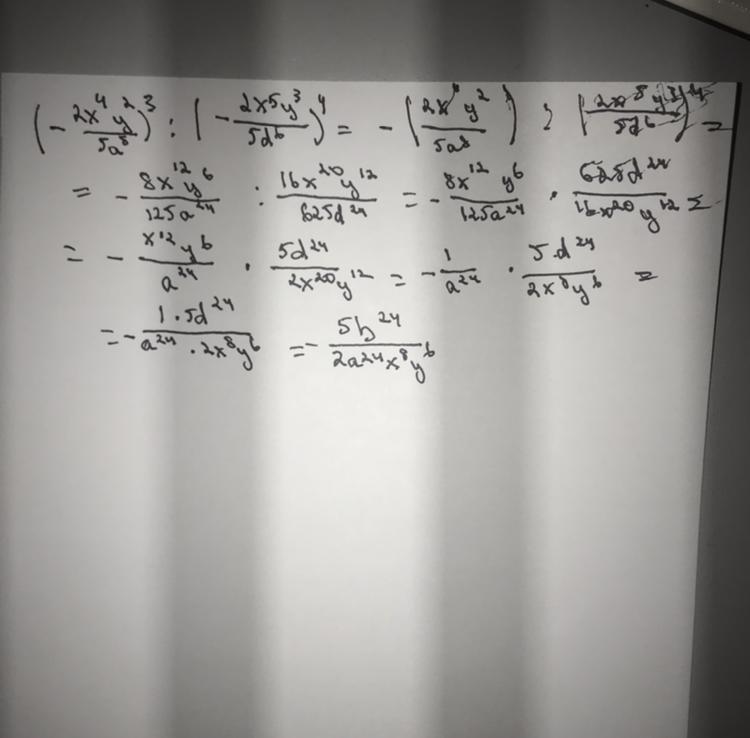 (-2x⁴y²/5a⁸)³ : (-2x⁵y³/5d⁶)⁴ = -(2x y²/5a⁸) : (2x⁸y³/5d⁶) =
= -8x¹²y⁶/125a²⁴ : 16x²⁰y¹²/625d²⁴ = -8x¹²y⁶/125a²⁴ · 625d²⁴/16x²⁰y¹² =
= -x¹²y⁶/a²⁴ · 5d²⁴/2x²⁰y¹² = -1/a²⁴ · 5d²⁴/2x⁸y⁶ =
= -1·5d²⁴/a²⁴·2x⁸y⁶ = -5b²⁴/2a²⁴x⁸y⁶